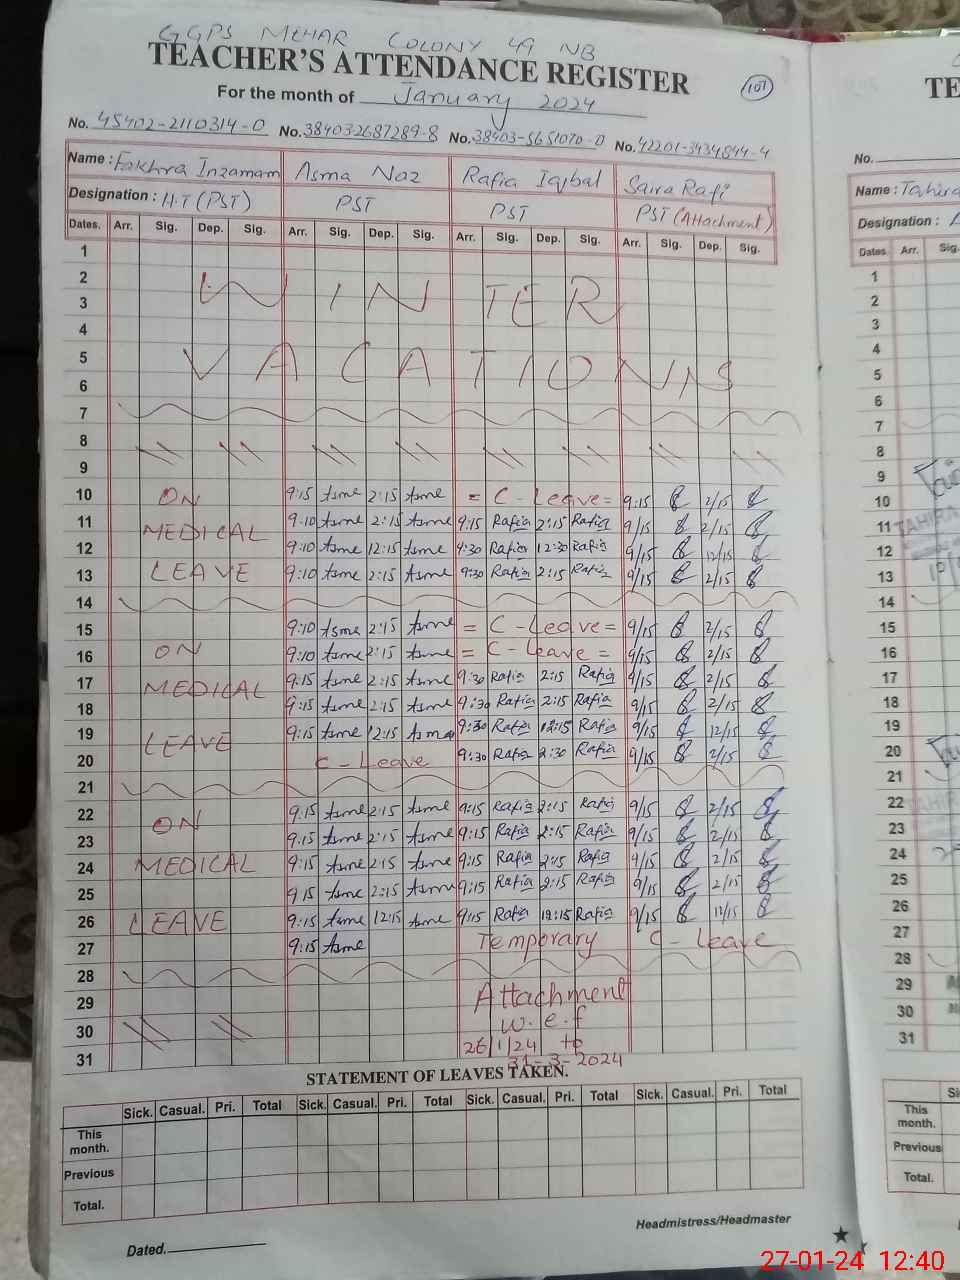 GGPS MEHAR COLONY 49 NB
TEACHER'S ATTENDANCE REGISTER
107
For the month of January 2024
No. 45402-2110314-0 No. 384032687289-8 No. 38403-5651070-0 No. 42201-3434844-4
Name : Fakhra Inzamam Asma Naz Rafia Iqbal Saira Rafi
Designation : H.T (PST) PST PST PST (Attachment)
Dates. Arr. Sig. Dep. Sig. Arr. Sig. Dep. Sig. Arr. Sig. Dep. Sig. Arr. Sig. Dep. Sig.
1
2
WINTER
3
4
5
VACATIONS
6
7
8
9
10 ON 9:15 Asme 2:15 Asme = C-Leave = 9:15 2/15
11 MEDICAL 9:10 Asme 2:15 Asme 9:15 Rafia 2:15 Rafia 9/15 2/15
12 9:10 Asme 12:15 Asme 9:30 Rafia 12:30 Rafia 9/15 12/15
13 LEAVE 9:10 Asme 2:15 Asme 9:30 Rafia 2:15 Rafia 9/15 2/15
14
15 9:10 Asme 2:15 Asme = C-Leave = 9/15 2/15
16 ON 9:10 Asme 2:15 Asme = C-Leave = 9/15 2/15
17 MEDICAL 9:15 Asme 2:15 Asme 9:30 Rafia 2:15 Rafia 9/15 2/15
18 9:15 Asme 2:15 Asme 9:30 Rafia 2:15 Rafia 9/15 2/15
19 LEAVE 9:15 Asme 12:15 Asma 9:30 Rafia 12:15 Rafia 9/15 12/15
20 C-Leave 9:30 Rafia 2:30 Rafia 9/15 2/15
21
22 ON 9:15 Asme 2:15 Asme 9:15 Rafia 2:15 Rafia 9/15 2/15
23 9:15 Asme 2:15 Asme 9:15 Rafia 2:15 Rafia 9/15 2/15
24 MEDICAL 9:15 Asme 2:15 Asme 9:15 Rafia 2:15 Rafia 9/15 2/15
25 9:15 Asme 2:15 Asme 9:15 Rafia 2:15 Rafia 9/15 2/15
26 LEAVE 9:15 Asme 12:15 Asme 9:15 Rafia 12:15 Rafia 9/15 12/15
27 9:15 Asme Temporary C-Leave
28
29 Attachment
30 w.e.f
26/1/24 to
31 31-3-2024
STATEMENT OF LEAVES TAKEN.
Sick. Casual. Pri. Total Sick. Casual. Pri. Total Sick. Casual. Pri. Total Sick. Casual. Pri. Total
This month.
Previous
Total.
Headmistress/Headmaster
Dated.
TE
No.
Name : Tahira
Designation :
Dates. Arr. Sig.
1
2
3
4
5
6
7
8
9
10
11 TAHIRA
12
13
14
15
16
17
18
19
20
21
22
23
24
25
26
27
28
29
30
31
This month.
Previous
Total.
27-01-24 12:40